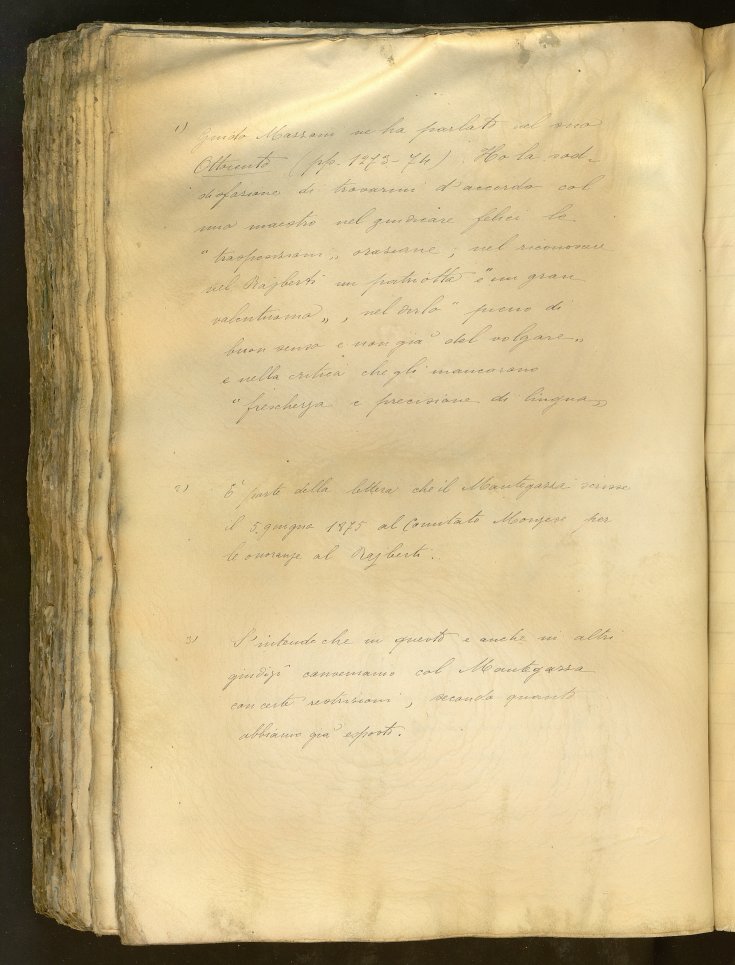 1) Guido Mazzoni ne ha parlato nel suo
Ottocento (pp. 1273-74). Ho la sod-
disfazione di trovarmi d'accordo col
mio maestro nel giudicare felici le
"trasposizioni" oraziane; nel riconoscere
nel Rajberti un patriotta e "un gran
valentuomo", nel dirlo "pieno di
buon senso e non già del volgare"
e nella critica che gli mancarono
"freschezza e precisione di lingua"
2) È parte della lettera che il Mantegazza scrisse
il 5 giugno 1875 al Comitato Monzese per
le onoranze al Rajberti.
3) S'intende che in questo e anche in altri
giudizi conveniamo col Mantegazza
con certe restrizioni, secondo quanto
abbiamo già esposto.